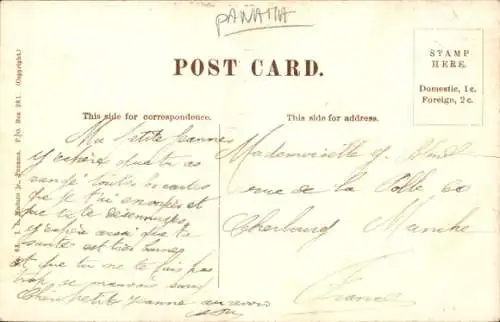 PANAMA
POST CARD.
STAMP
HERE.
Domestic, 1c.
Foreign, 2c.
This side for correspondence.
This side for address.
Ma petite Jeanne
J'espère que tu as
rangé toutes les cartes
que je t'ai envoyés et
que tu
J'espère aussi que ta
santé est très bonne
et que tu ne te fais pas
trop de mauvais sang
Chère petite Jeanne au revoir
Mademoiselle J.
rue de la Polle 60
Cherbourg Manche
France
I. L. Maduro Jr., Panama. P.O. Box 281. (Copyright.)